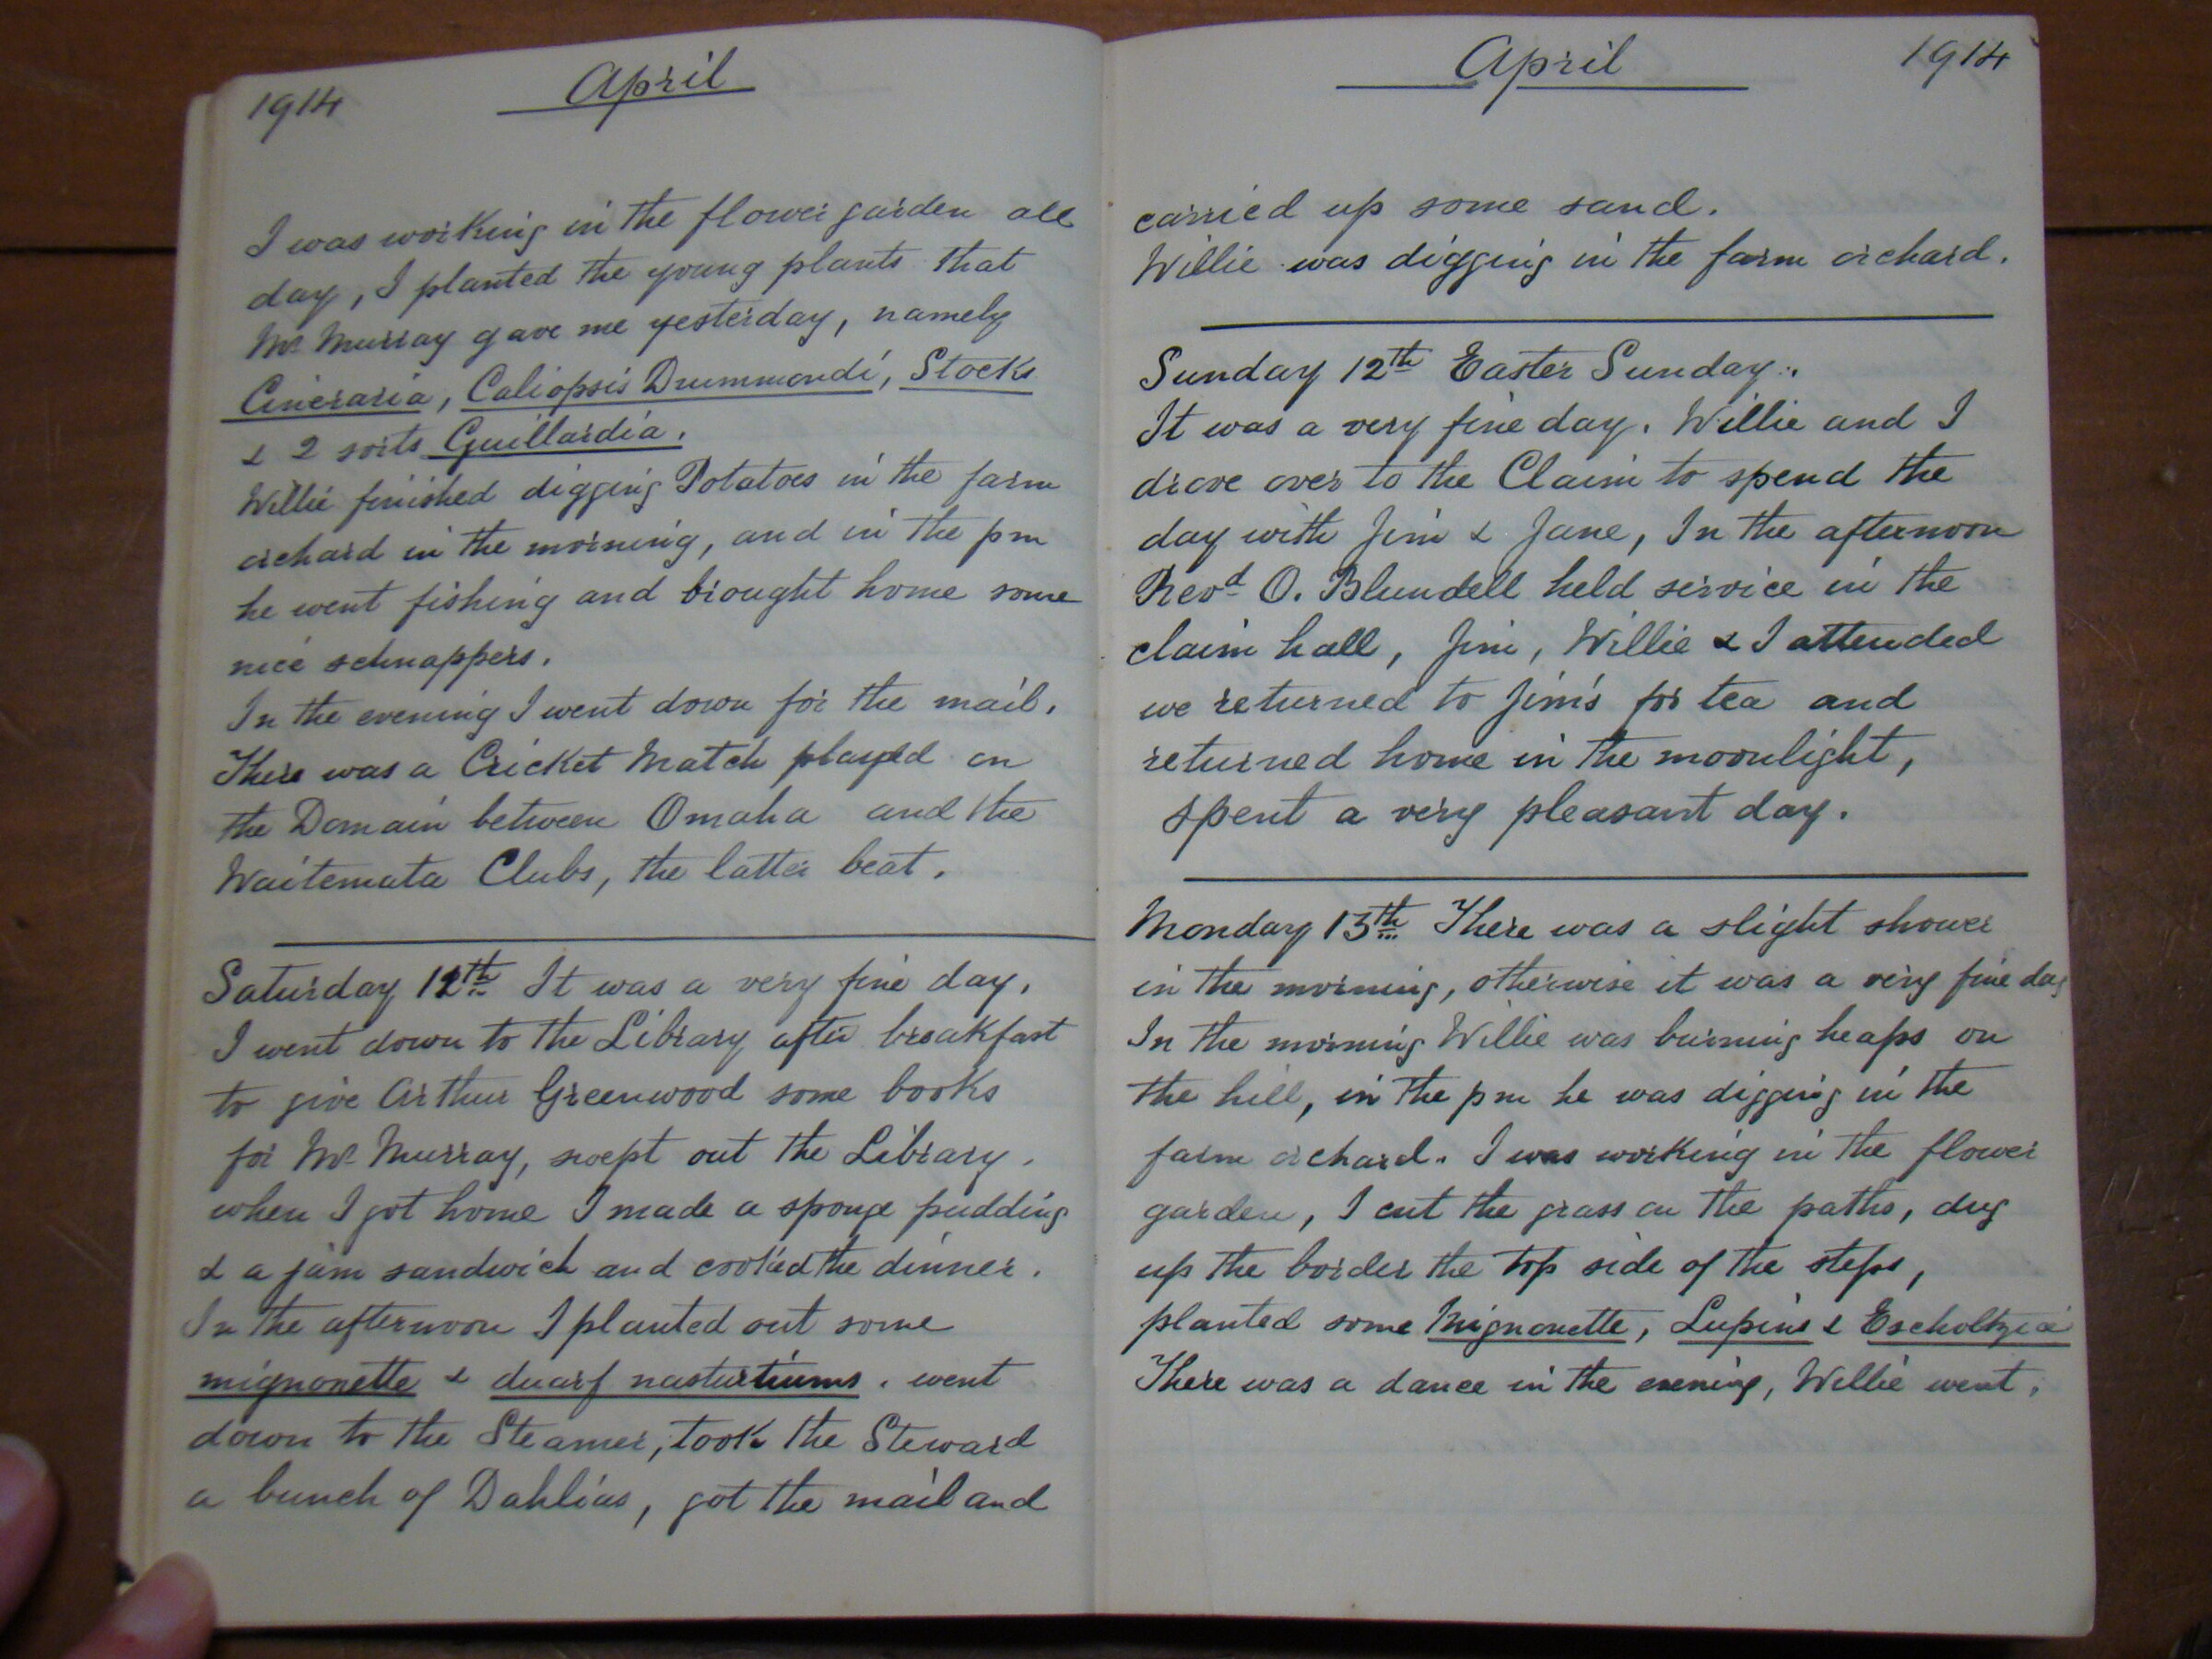 1914 April
I was working in the flower garden all
day, I planted the young plants that
Mr Murray gave me yesterday, namely
Cineraria, Caliopsis Drummondi, Stocks
& 2 sorts Guillardia.
Willie finished digging Potatoes in the farm
orchard in the morning, and in the pm
he went fishing and brought home some
nice schnappers.
In the evening I went down for the mail.
There was a Cricket Match played on
the Domain between Omaha and the
Waitemata Clubs, the latter beat.
Saturday 11th It was a very fine day.
I went down to the Library after breakfast
to give Arthur Greenwood some books
for Mr Murray, swept out the Library.
when I got home I made a sponge pudding
& a jam sandwich and cooked the dinner.
In the afternoon I planted out some
mignonette & dwarf nasturtiums. went
down to the Steamer, took the Steward
a bunch of Dahlias, got the mail and
April 1914
carried up some sand.
Willie was digging in the farm orchard.
Sunday 12th Easter Sunday.
It was a very fine day. Willie and I
drove over to the Claim to spend the
day with Jim & Jane, In the afternoon
Revd O. Blundell held service in the
claim hall, Jim, Willie & I attended
we returned to Jim's for tea and
returned home in the moonlight,
spent a very pleasant day.
Monday 13th There was a slight shower
in the morning, otherwise it was a very fine day
In the morning Willie was burning heaps on
the hill, in the pm he was digging in the
farm orchard. I was working in the flower
garden, I cut the grass on the paths, dug
up the border the top side of the steps,
planted some Mignonette, Lupins & Escholtzia
There was a dance in the evening, Willie went.